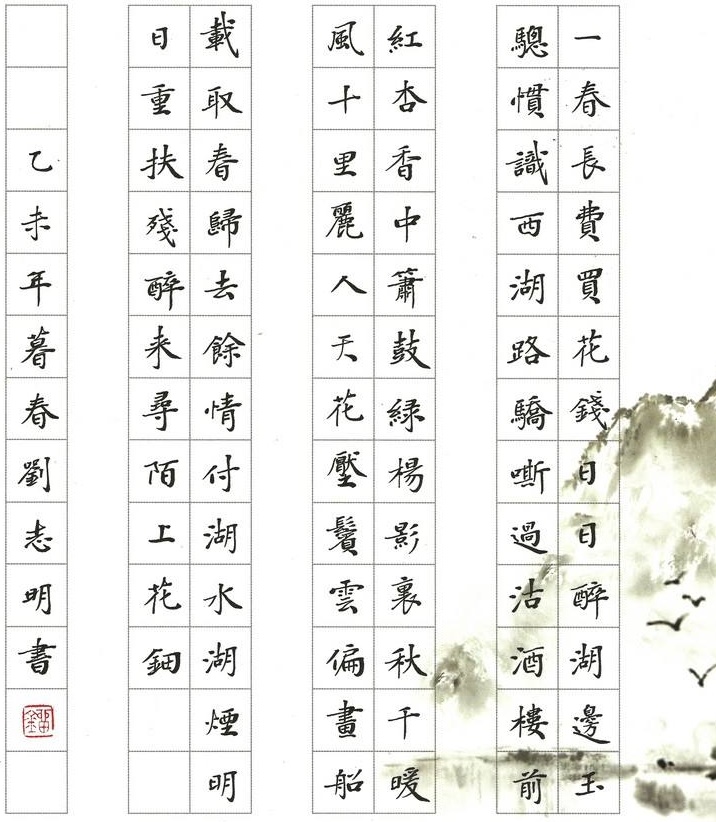 一春長費買花錢日日醉湖邊玉
驄慣識西湖路驕嘶過沽酒樓前
紅杏香中簫鼓緑楊影裏秋千暖
風十里麗人天花壓鬢雲偏畫船
載取春歸去餘情付湖水湖煙明
日重扶殘醉来尋陌上花鈿
乙未年暮春劉志明書